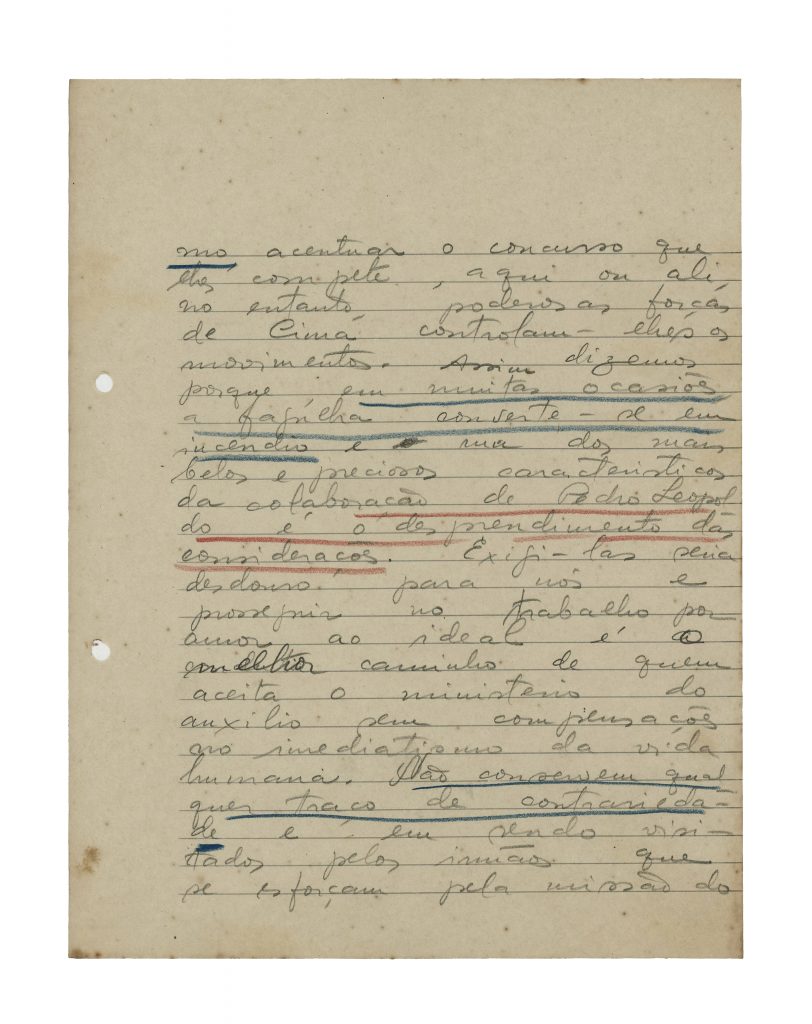 mo acentuar o concurso que
lhes compete, aqui ou ali,
no entanto, poderosas forças
de Cima controlam-lhes os
movimentos. Assim dizemos
porque em muitas ocasiões
a fagulha converte-se em
incendio e uma dos mais
belos e preciosos caracteristicos
da colaboração de Pedro Leopol
do é o desprendimento das
considerações. Exigi-las seria
desdouro para nós e
prosseguir no trabalho por
amor ao ideal é o
melhor caminho de quem
aceita o ministerio do
auxilio sem compensações
no imediatismo da vida
humana. Não conservem qual
quer traço de contrarieda-
de e em sendo visi-
tados pelos irmãos que
se esforçam pela missão do